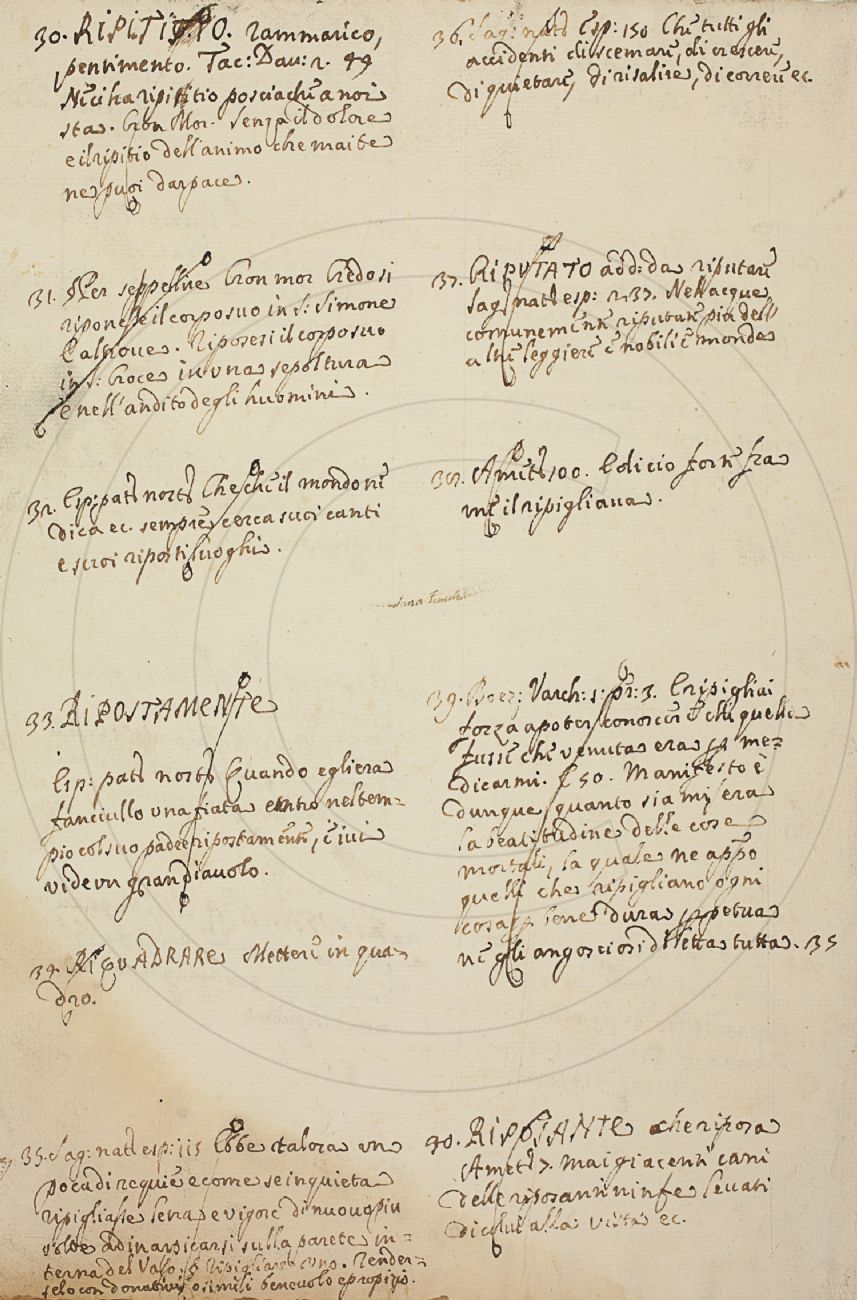 30. RIPITIO. rammarico,
pentimento. Tac: Dau: 2. 49
Nuci ha ripitio posciache a noi
sta. Cron Mor. Senza il dolore
e il ripitio dell'animo che mai te
ne puoi dar pace.
31. Per seppellire Cron mor Credo si
riponesse il corpo suo in S: Simone
e altrove. Riposesi il corpo suo
in S: Croce in una sepoltura
e nell'andito degli huomini.
32. Esp: pat: nost: Che che il mondo ne
dica ec. sempre cerca suoi canti
e suoi riposti luoghi.
33. RIPOSTAMENTE
Esp: pat: nost: Quando egli era
fanciullo una fiata entrò nel tem=
pio col suo padre ripostamente, e ivi
vide un gran diavolo.
34. RIQUADRARE Mettere in qua=
dro.
35. Sag: nat: esp: 115 Ebbe talora un
poca di requie e come se inquieta
ripigliasse lena e vigore di nuovo più
volte ad inarpicarsi sulla parete in=
terna del Vaso. § Ripigliare uno. Render=
selo con donativi o simili benevolo e propizio.
36. Sag: nat: Esp: 150 Che tutti gli
accidenti di scemare, di crescere,
di quietare, di risalire, di correre ec.
37. RIPUTATO add: da riputare
Sag: nat: esp: 237. Nell acque
comunemente riputate più dell'
altre leggiere e nobili e monde
38. Amet: 100. Edicio forte fra
me il ripigliava.
39. Boez: Varch: 1: pr: 3. E ripigliai
forza a poter conoscere chi quella
fusse che venuta era per me=
dicarmi. E 50. Manifesto è
dunque quanto sia misera
la beatitudine delle cose
mortali, la quale ne appo
quelli che ripigliano ogni
cosa per bene dura perpetua
ne gli angosciosi diletta tutta. 35
40. RIPOSANTE che riposa
Amet: 7. Mai giacenti cani
delle riposanti ninfe levati
alla vista ec.